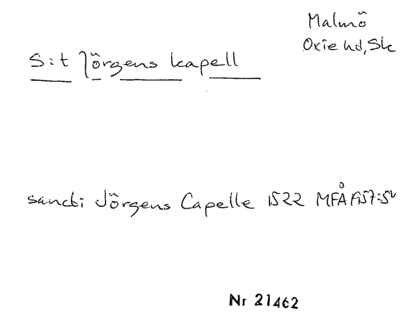 Malmö
Oxie hd, Sk
S:t Jörgens kapell
sancti Jörgens Capelle 1522 MFÅ
Nr 21462